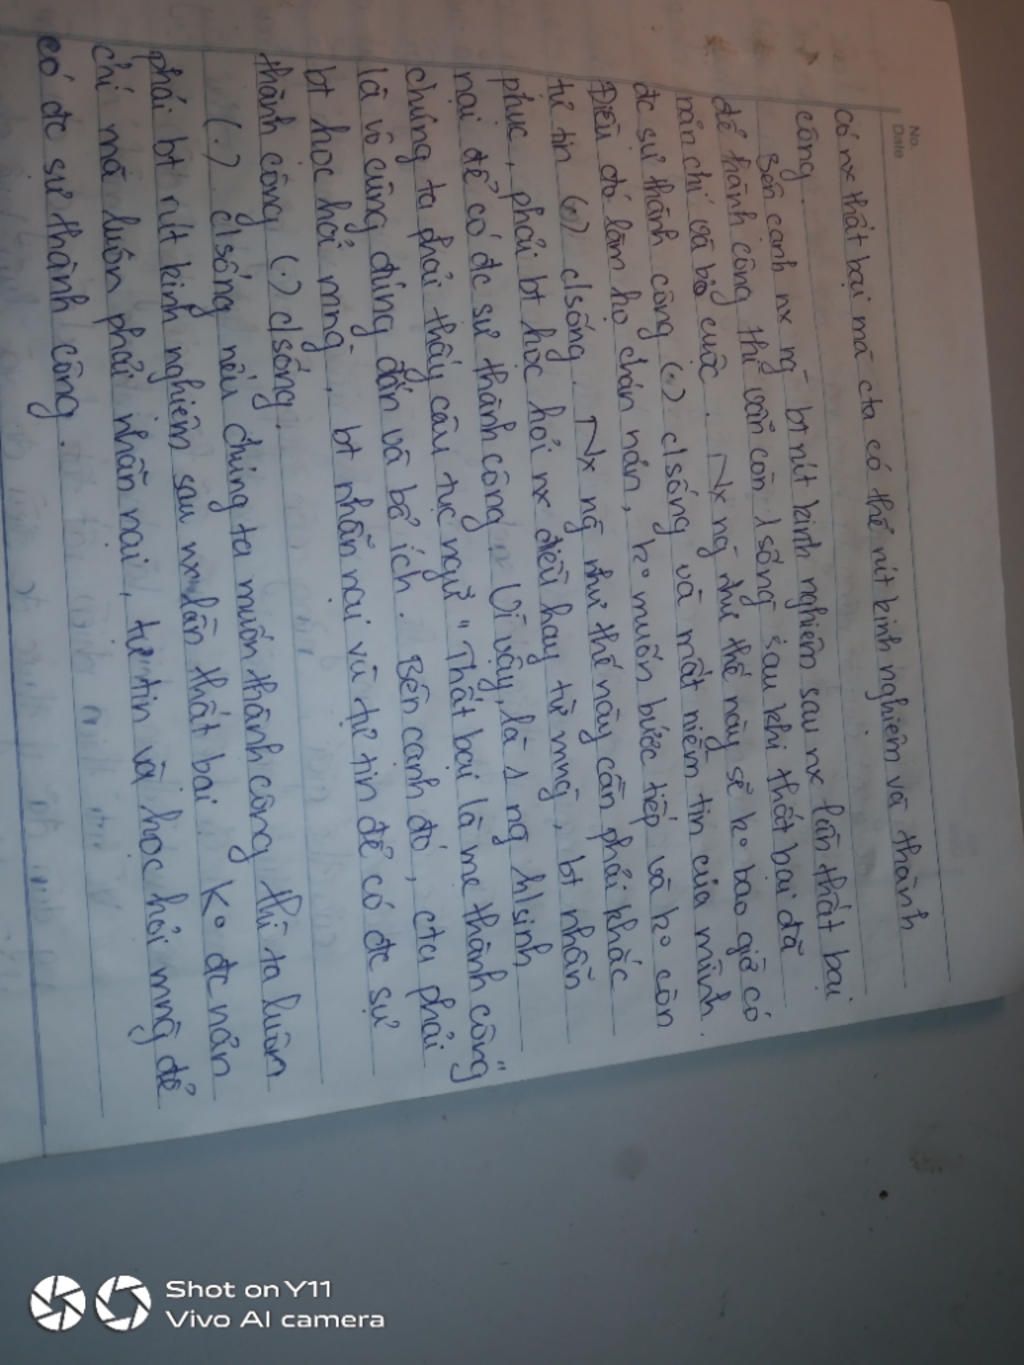 No.
Date
có nx thất bại mà cta có thể rút kinh nghiệm và thành
công.
Bên cạnh nx ng~ bt rút kinh nghiệm sau nx lần thất bại
để thành công thì vẫn còn 1 số ng~ sau khi thất bại đã
nản chí và bỏ cuộc. Nx ng~ như thế này sẽ ko bao giờ có
đc sự thành công (.) c/sống và mất niềm tin của mình.
Điều đó làm họ chán nản, ko muốn bước tiếp và ko còn
tự tin (.) c/sống. Nx ng~ như thế này cần phải khắc
phục, phải bt học hỏi nx điều hay từ mng~, bt nhẫn
nại để có đc sự thành công. Vì vậy, là 1 ng~ h/sinh
chúng ta phải thấy câu tục ngữ "Thất bại là mẹ thành công"
là vô cùng đúng đắn và bổ ích. Bên cạnh đó, cta phải
bt học hỏi mng~, bt nhẫn nại và tự tin để có đc sự
thành công (.) c/sống.
(.) c/sống nếu chúng ta muốn thành công thì ta luôn
phải bt rút kinh nghiệm sau nx lần thất bại. Ko đc nản
chí mà luôn phải nhẫn nại, tự tin và học hỏi mng~ để
có đc sự thành công.
Shot on Y11
Vivo AI camera